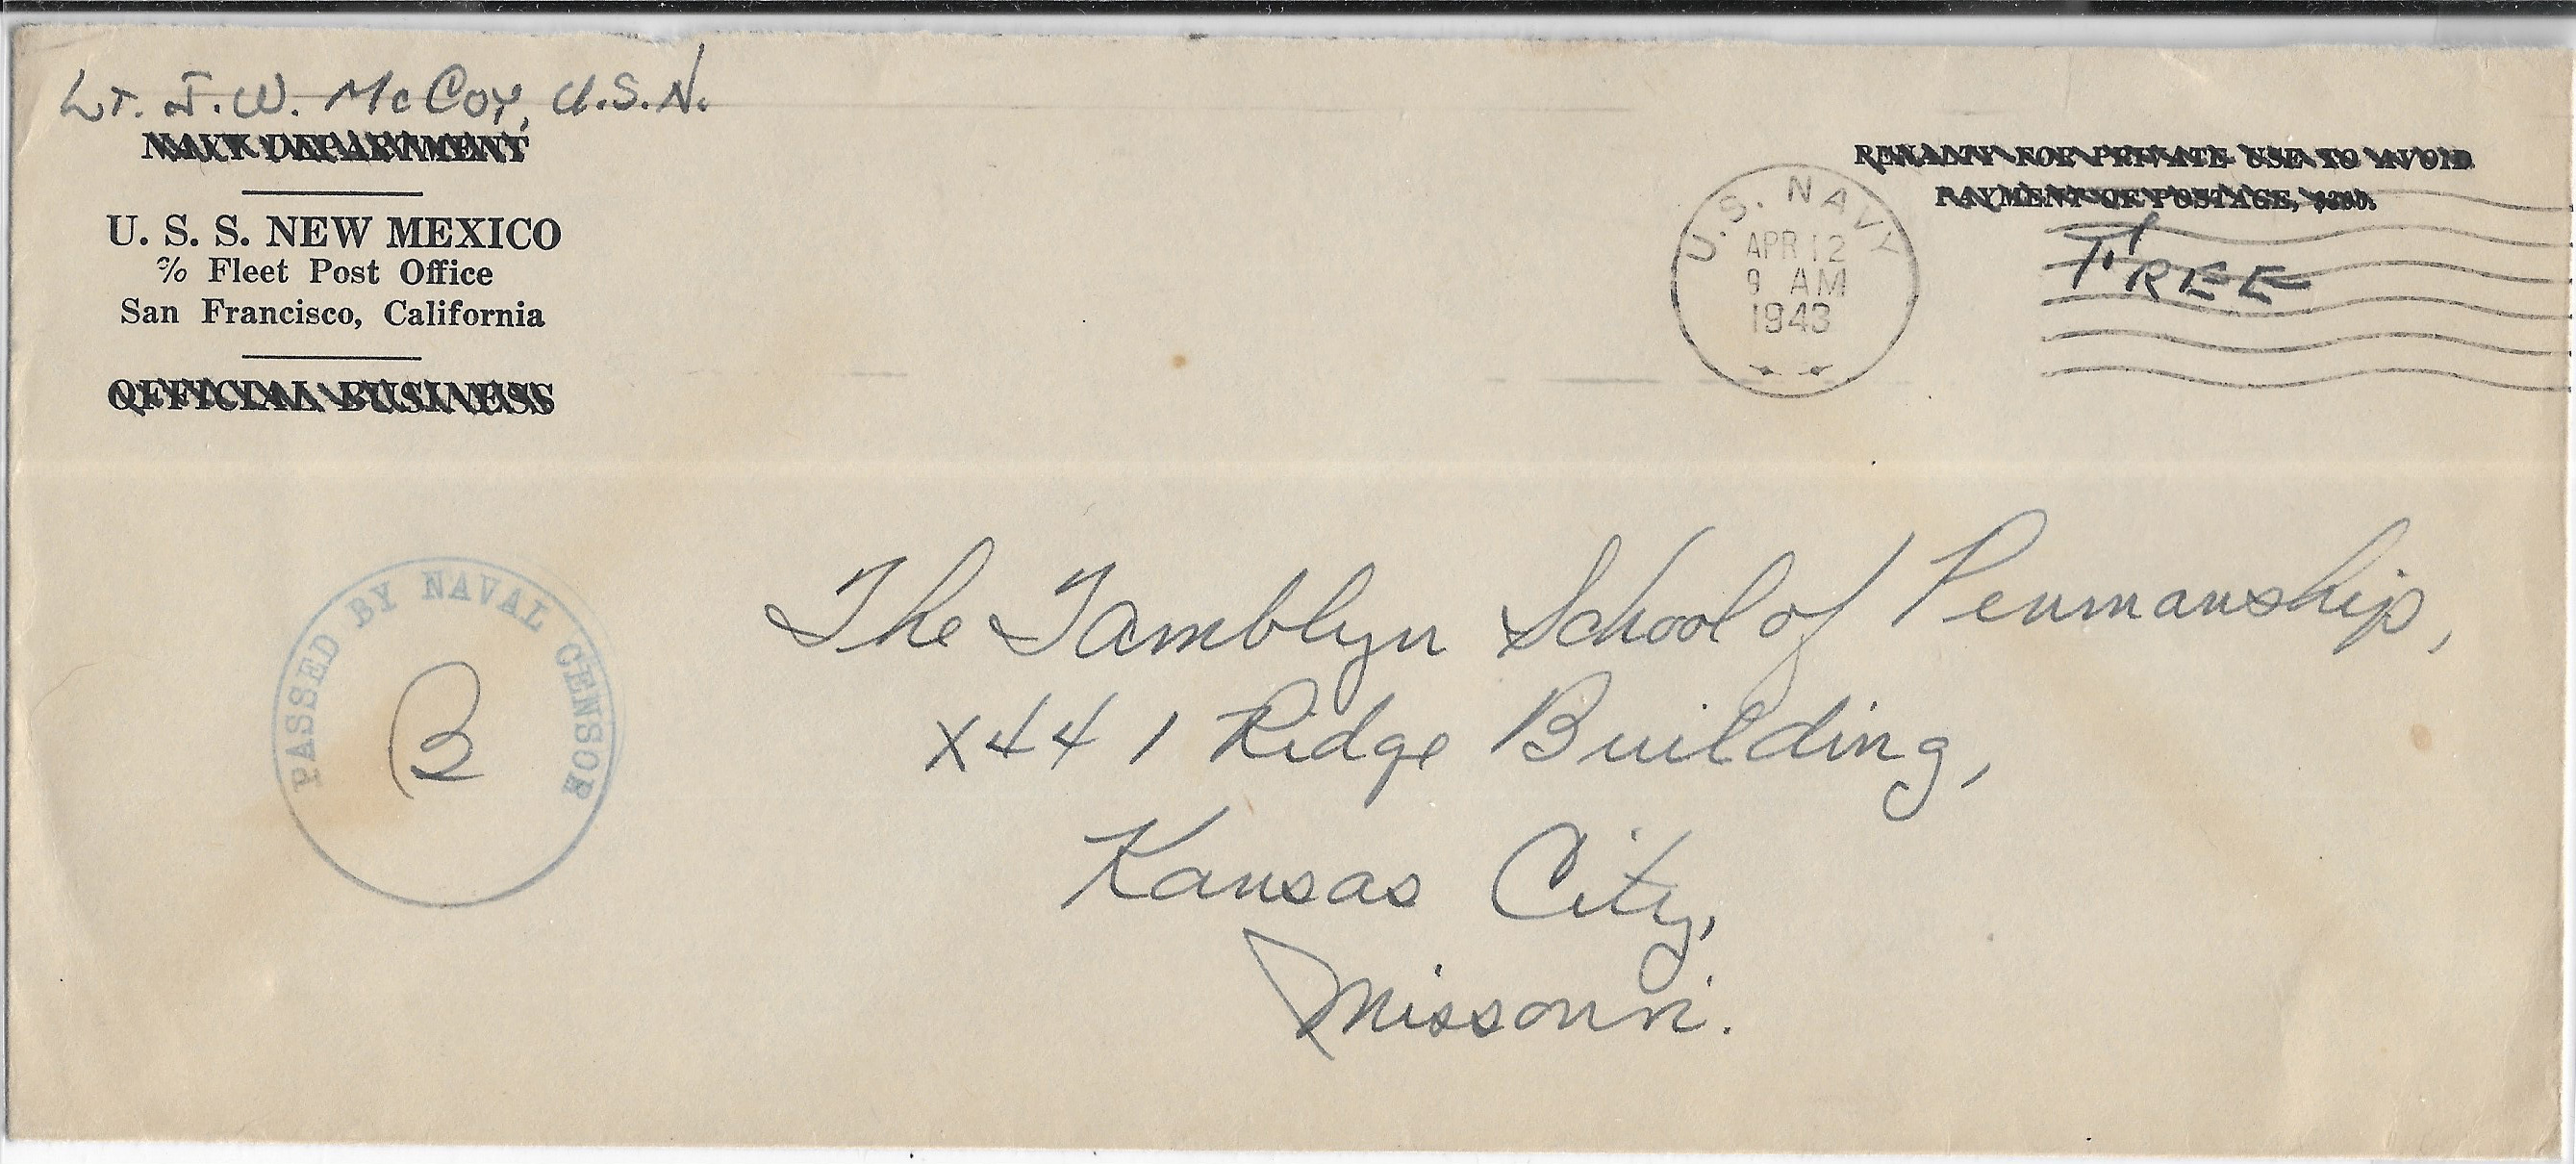 Lt. J. W. McCoy, U.S.N.
NAVY DEPARTMENT
U. S. S. NEW MEXICO
c/o Fleet Post Office
San Francisco, California
OFFICIAL BUSINESS
PENALTY FOR PRIVATE USE TO AVOID
PAYMENT OF POSTAGE, $300.
U.S. NAVY
APR 12
9 AM
1943
FREE
PASSED BY NAVAL CENSOR
The Tamblyn School of Penmanship,
X441 Ridge Building,
Kansas City,
Missouri.